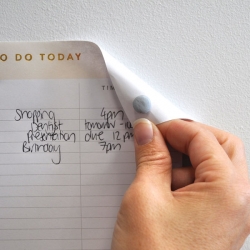 O DO TODAY
TIM
Shopping 4pm
Dentist tomorrow
Presentation due 12pm
Birthday 7pm